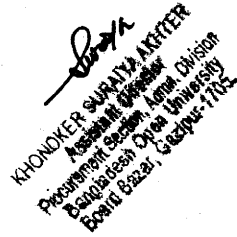 Suraiya
KHONDKER SURAIYA AKHTER
Assistant Director
Procurement Section, Admn. Division
Bangladesh Open University
Board Bazar, Gazipur-1705